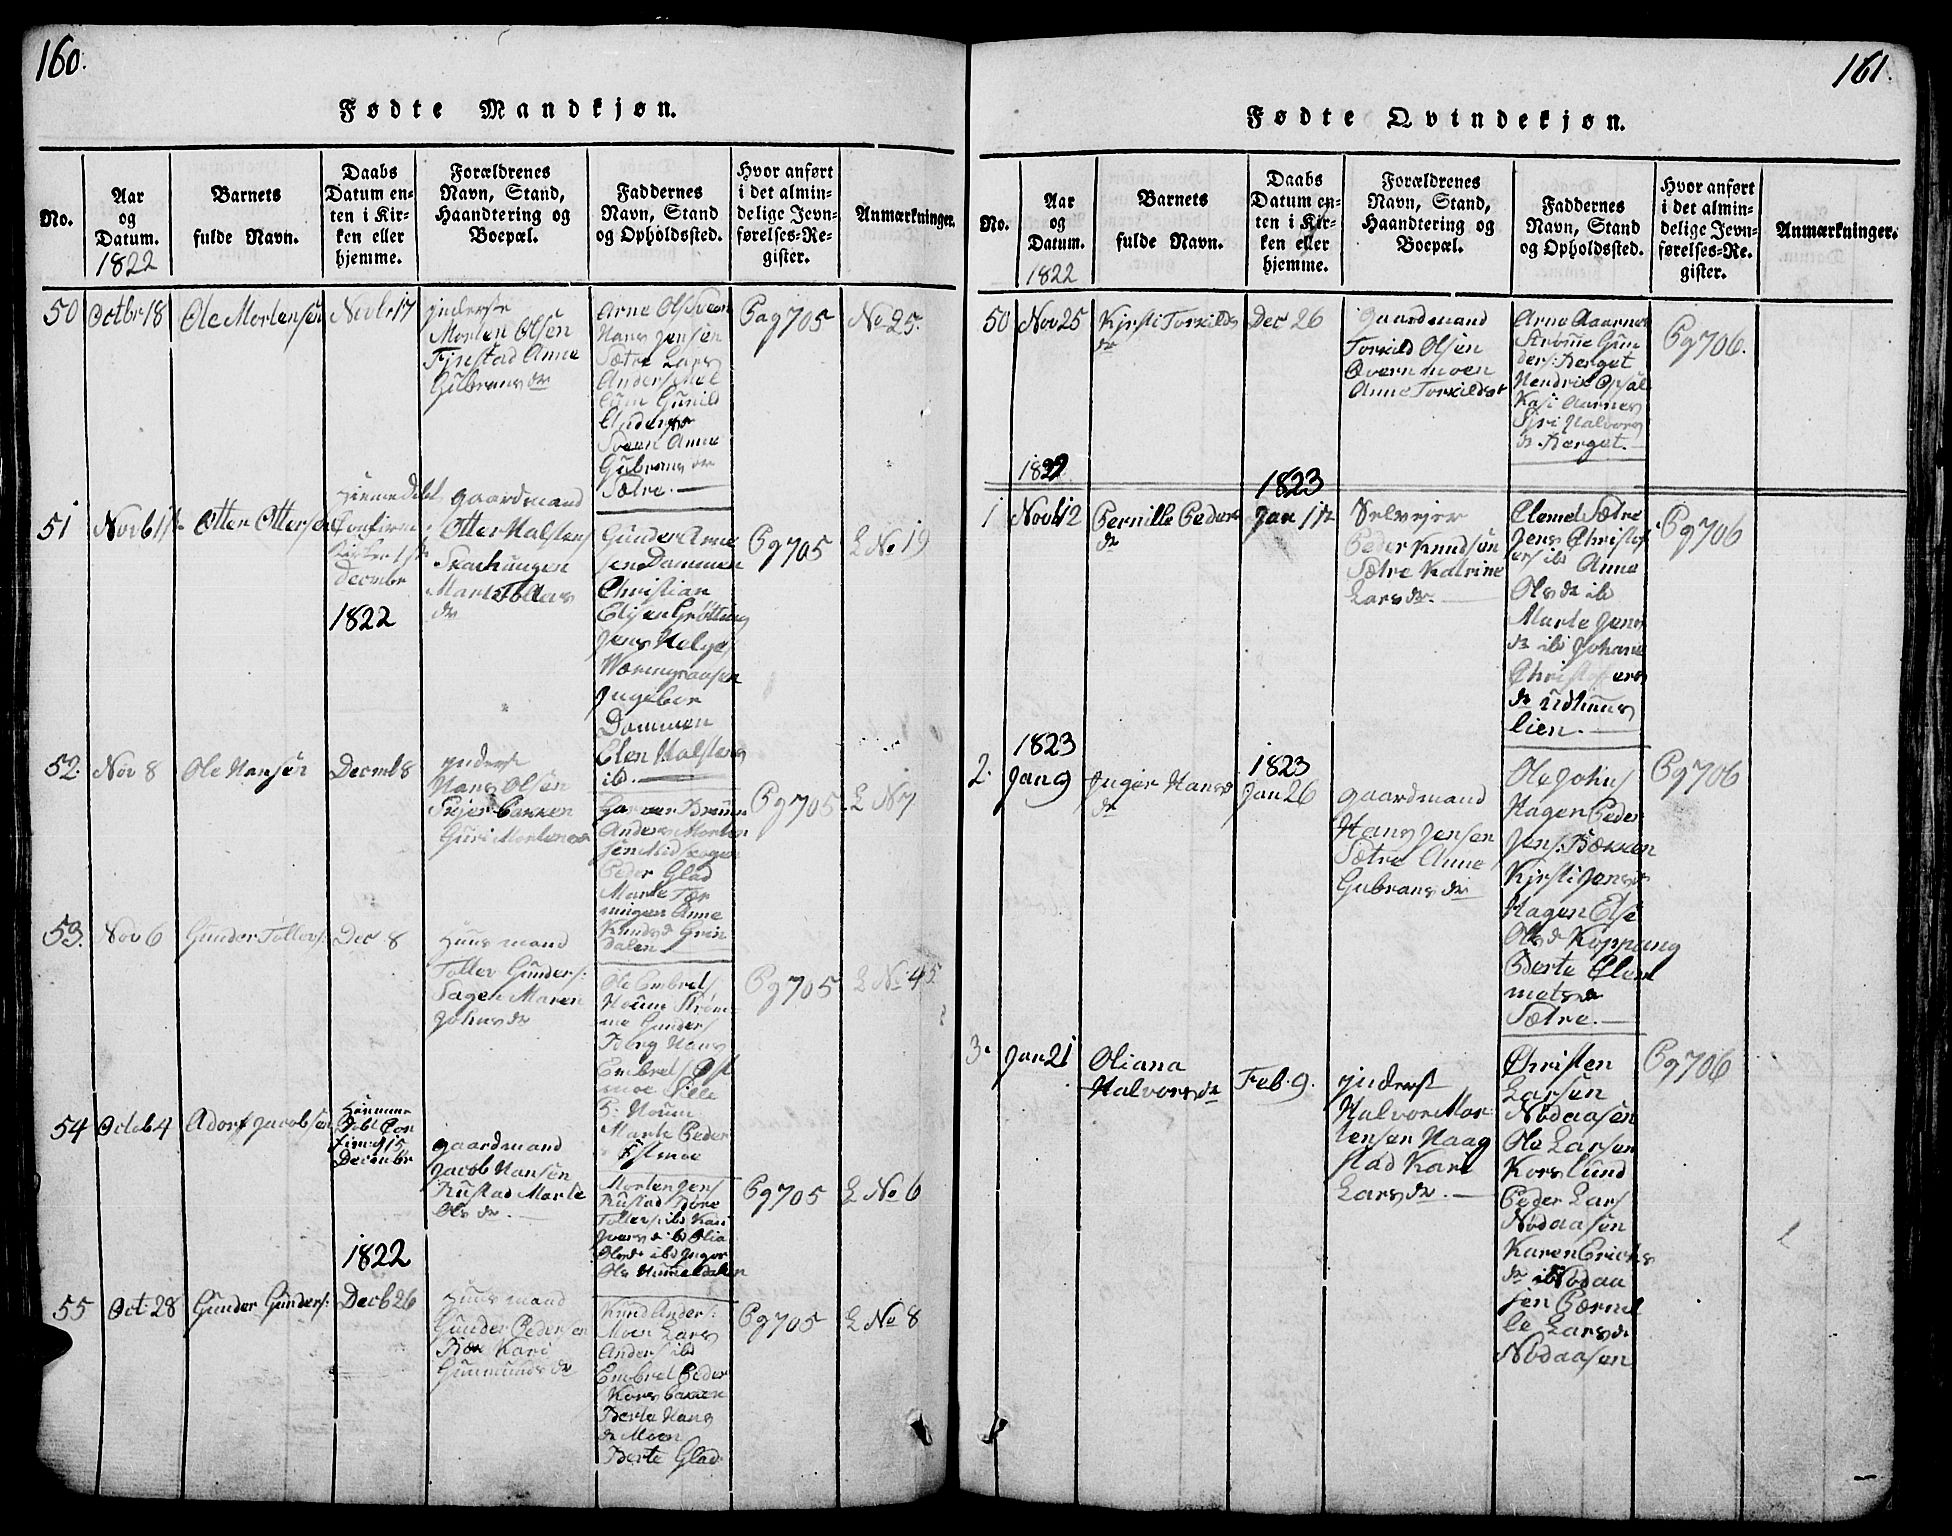 160.
Fødte Mandkjøn.
No.
Aar
og
Datum.
1822
Barnets
fulde Navn.
Daabs
Datum en-
ten i Kir-
ken eller
hjemme.
Forældrenes
Navn, Stand,
Haandtering og
Boepæl.
Faddernes
Navn, Stand
og Opholdssted.
Hvor anført
i det almin-
delige Jevn-
førelses-Re-
gister.
Anmærkninger.
50
Octbr 18
Ole Mortensøn
Novbr 17
Inderste
Morten Olsen
Anne
Gulbransdr
Arne Ols Sveen
Hans Jensen
Sætre Lars
Anders
Gunild
Anders
Sveen Anne
Gubransdr
Sætre.
Pag 705
No 25.
51
Otter Ottersen
Decembr
1822
Gaardmand
Otter Halstens
Skachaugen
dr
Gunder Arne
sen Dammen
Christian
Jens Helge
Ingebor
Dammen
Elen Halstens
ib.
Pg 705
L No 19
52.
Nov 8
Ole Hansen
Decmb 8
Inderst
Hans Olsen
Guri Mortensdr
Anders Morten
sen Midskogen
Peder Glad
Marte
Anne
Knudsdr Grin
dalen
Pg 705
L No 7
53.
Nov 6
Gunder Tollevs:
Dec 8
Huusmand
Tollev Gunders:
Sagen Maren
Johnsdr
Ole Embrets
Strøm
me Gunders
Hans
Embrets Øst
moe
Marte Peder
Østmoe
Pg 705
L No 45
54
Octob 4
Adolf Jacobsen
Hiemme
Døbt Con
firm: 15
Decembr
Gaardmand
Jacob Hansen
Rustad Marte
Ols dr.
Morten Jens
Rustad Tore
Tollevs: ib Kari
Iversdr ib Olia
Olsdr ib Inger
Ols Hummeldalen
Pg 705
L No 6
1822
55
Oct: 28
Gunder Gunders:
Decb 26
Huusmand
Gunder Pedersen
Kari
Gunmundsdr
Knud Anders:
Moen Lars
Anders ib
Embret Peder
Korsbakken
Berte Hans
dr Moen
Berte Glad
Pg 705
L No 8
161.
Fødte Qvindekjøn.
No.
Aar
og
Datum.
1822
Barnets
fulde Navn.
Daabs
Datum en-
ten i Kir-
ken eller
hjemme.
Forældrenes
Navn, Stand,
Haandtering og
Boepæl.
Faddernes
Navn, Stand
og Opholdssted.
Hvor anført
i det almin-
delige Jevn-
førelses-Re-
gister.
Anmærkninger.
50
Nov 25
Kjersti Torkilds
dr
Dec 26
Gaardmand
Torkild Olsen
Øvern moen
Anne Torkildsdr
Arne Aarnes
Strømme Gun
ders: Berget
Hendrik Opsal
Kari Aarnes
Siri Halvors
dr Berget.
1822
1823
1
Novb 12
Pernille Peders
dr
Jan 1ste
Selvejer
Peder Knudsøn
Sætre Katrine
Larsdr.
Clemet Sætre
Jens Christof
ers ib Anne
Olsdr ib
Marte Jens
dr ib Johane
Christofers
dr Udhuus
lien.
Pg 706
1823
2.
Jan 9
Inger Hans
dr
1823
Jan 26
Gaardmand
Hans Jensen
Sætre Anne
Gubransdr
Ole Johns
Hagen Peder
Jens: Bækken
Kjersti Jensdr
Hagen Else
Olsdr Koppang
Berte Clem
metsdr
Sætre.
Pg 706
3.
Jan 21
Oliana
Halvorsdr
Feb. 9.
Inderst
Halvor Mor
tensen Haag
stad Kari
Larsdr.
Christen
Larsen
Nødaasen
Ole Larsen
Korslund
Peder Lars
Nødaasen
Karen Erichs
dr ib Nødaa
sen Pernil
le Larsdr
Nødaasen
Pg 706